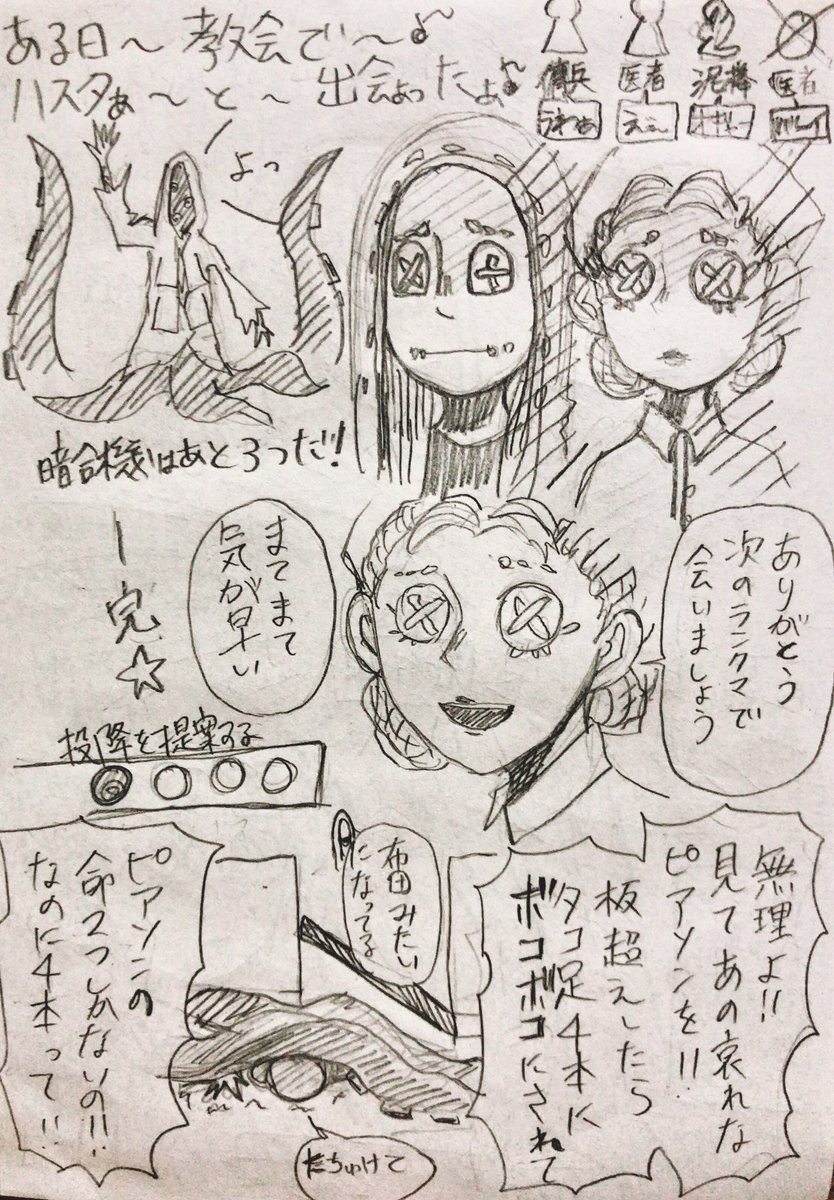 ある日～教会で～♪
ハスタぁ～と～出会ったよ♪
傭兵
医者
泥棒
医者
うわぁ
ええ…
よっ
暗号機はあと3つだ!
ありがとう
次のランクマで
会いましょう
まてまて
気が早い
ー完☆
投降を提案する
無理よ!!
見てあの哀れな
ピアソンを!!
板超えしたら
タコ足4本に
ボコボコにされて
布団みたい
になってる
ピアソンの
命2つしかないの!!
なのに4本って!!
たちゅけて